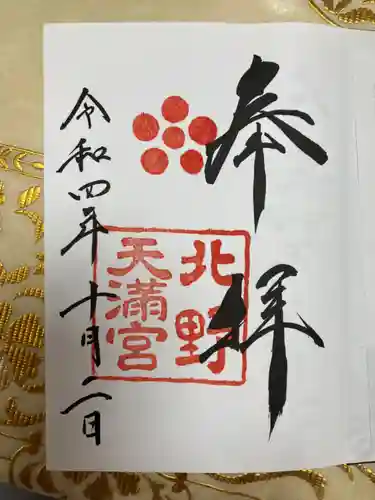 奉拝
北野
天満宮
令和四年十月二日